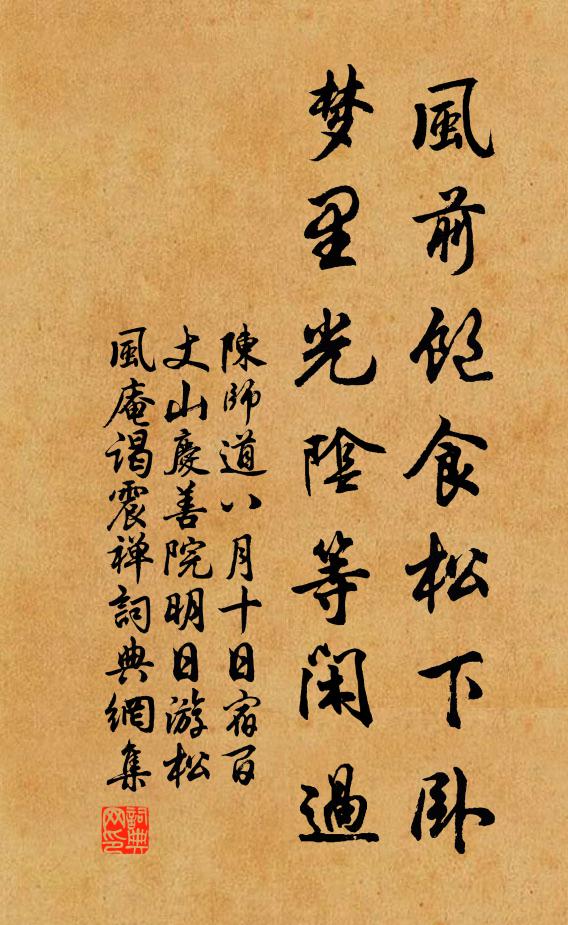 風前飽食松下卧
梦里光陰等閑過
陳師道八月十日宿百
丈山慶善院明日游松
風庵谒震禅詞典網集
詞典网印